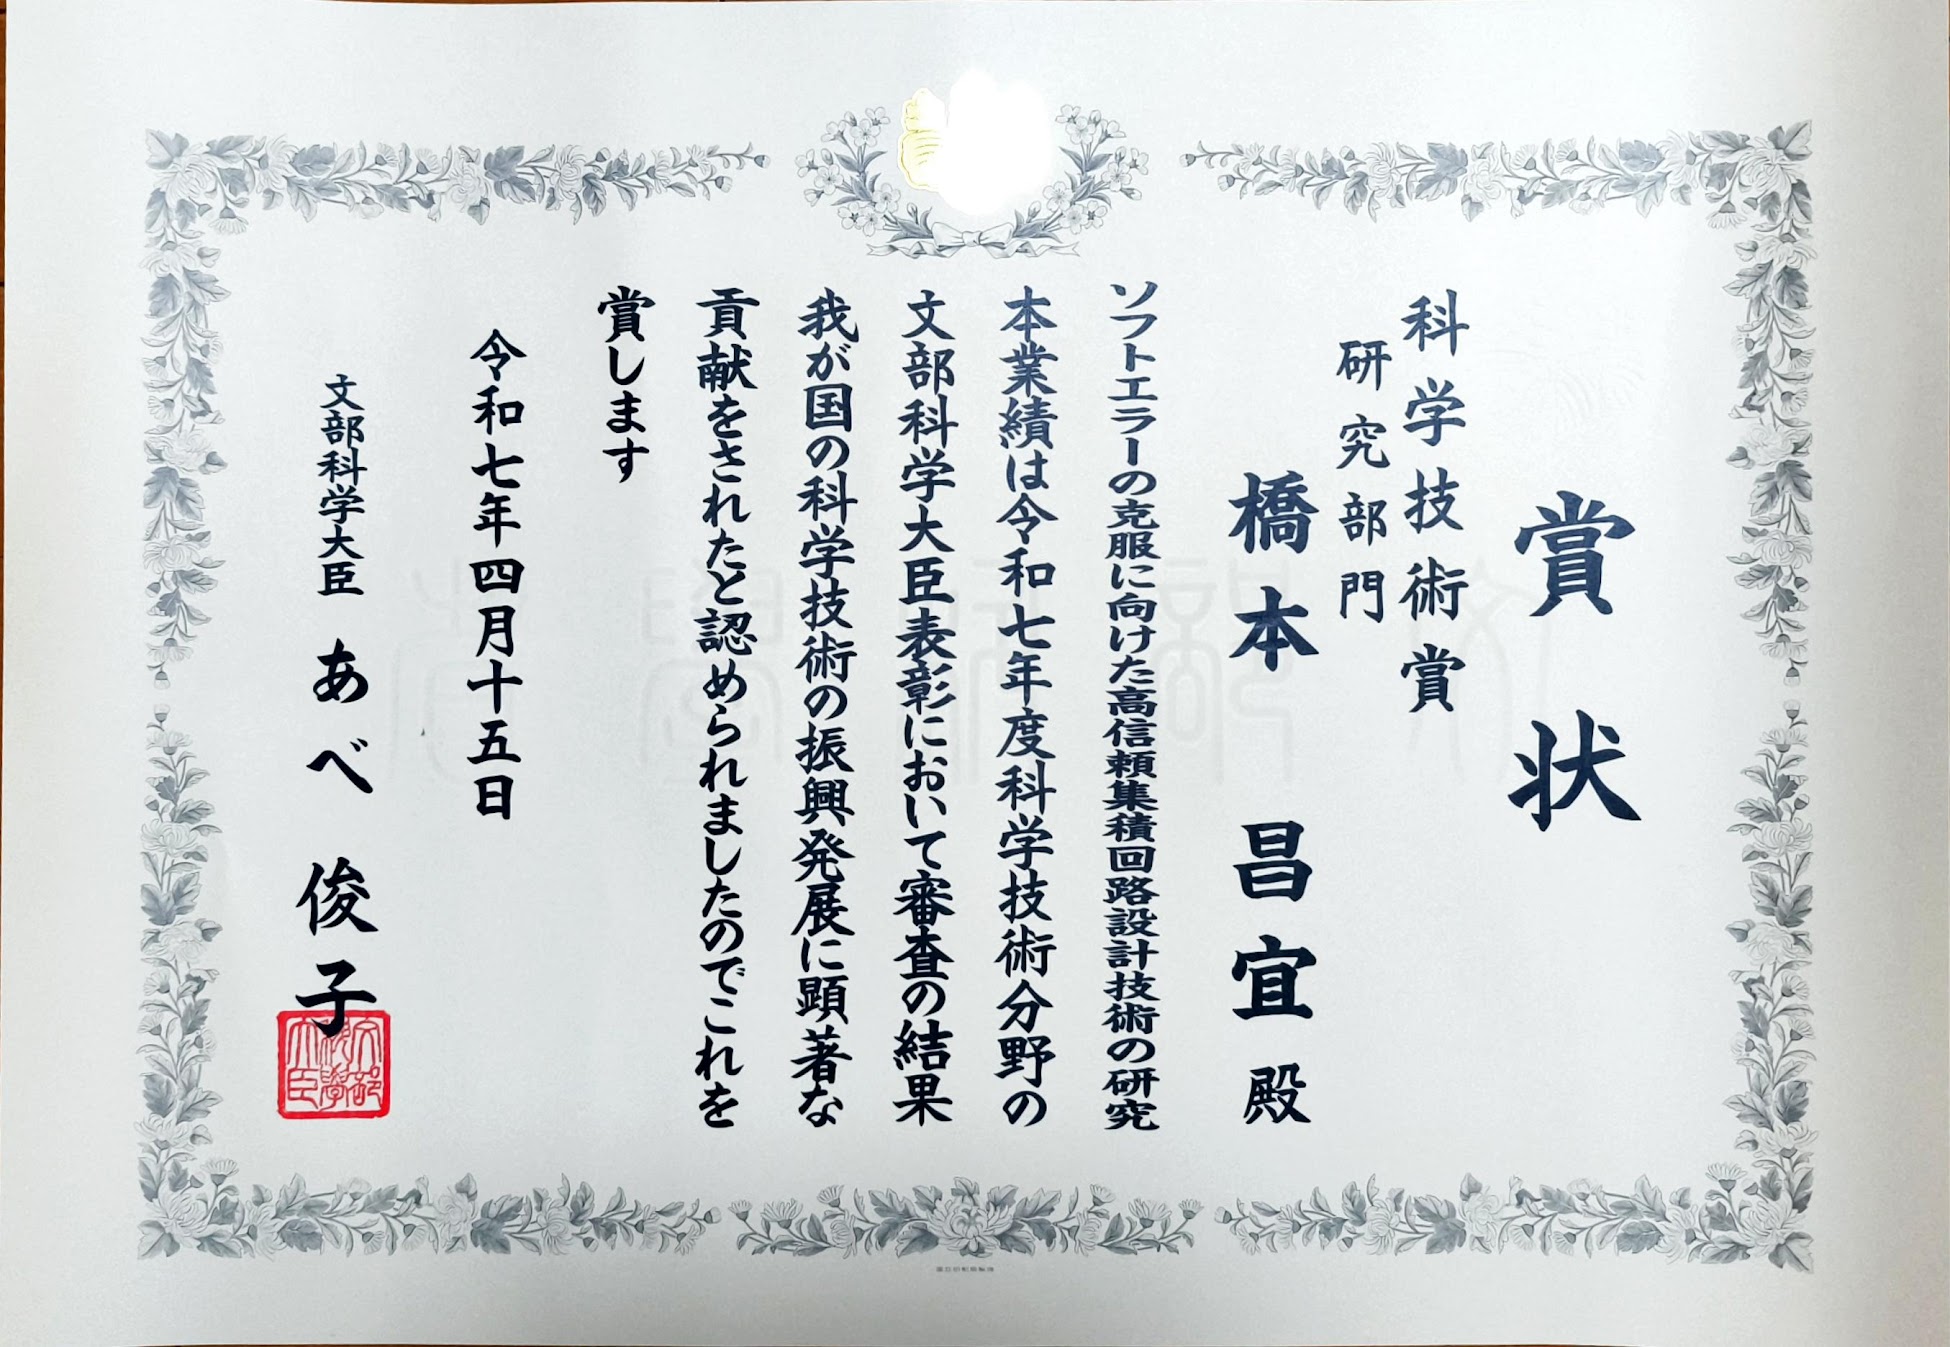 賞状
科学技術賞
研究部門
橋本昌宜殿
ソフトエラーの克服に向けた高信頼集積回路設計技術の研究
本業績は令和七年度科学技術分野の
文部科学大臣表彰において審査の結果
我が国の科学技術の振興発展に顕著な
貢献をされたと認められましたのでこれを
賞します
令和七年四月十五日
文部科学大臣 あべ俊子